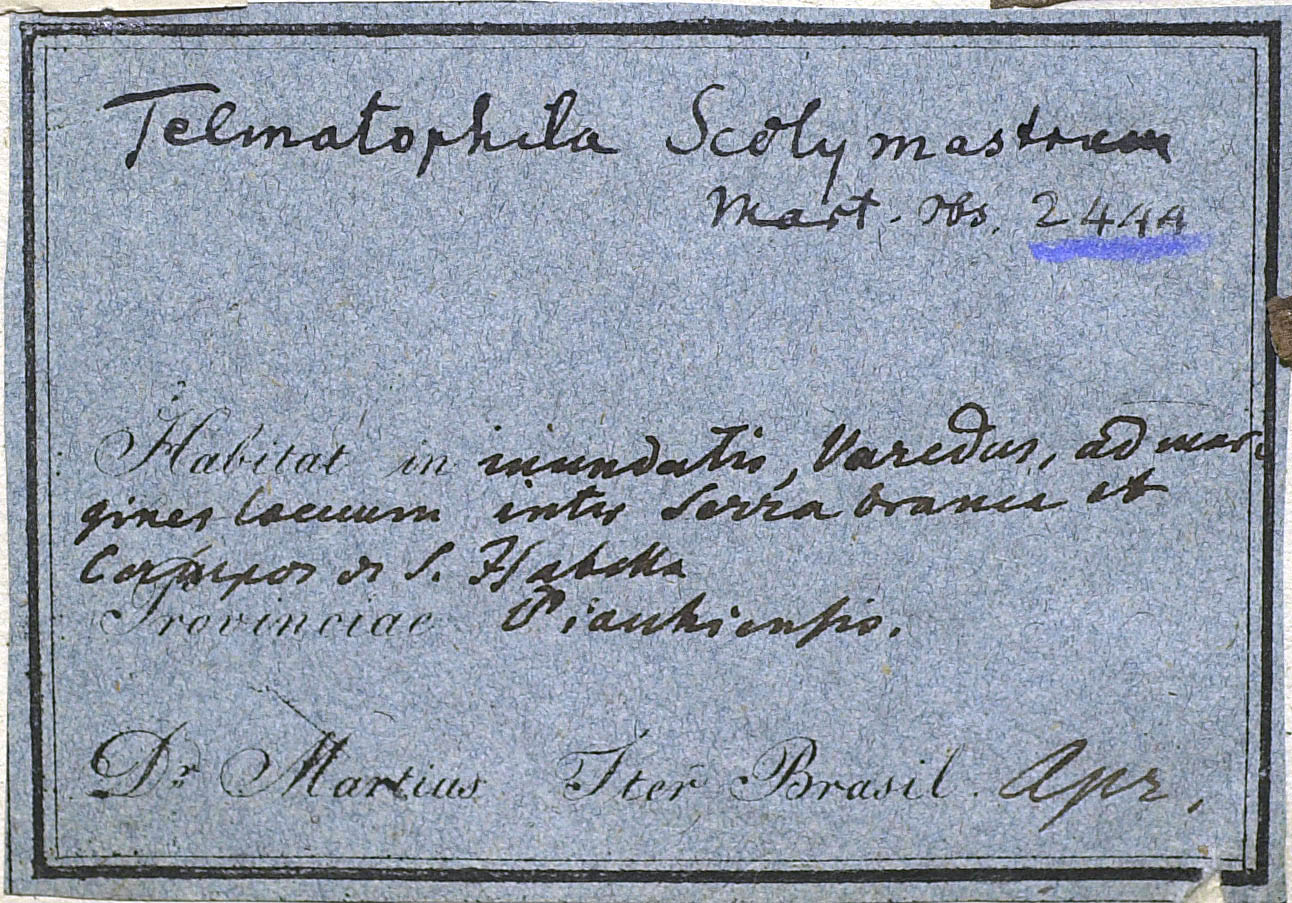 Telmatophila Scolymastrum
Mart. obs. 2444
Habitat in inundatis, Varedus, ad mar-
gines lacuum inter Serra branca et
Campos de S. Isabella
Provinciae Piauhiensis.
Dr Martius Iter Brasil. Apr.